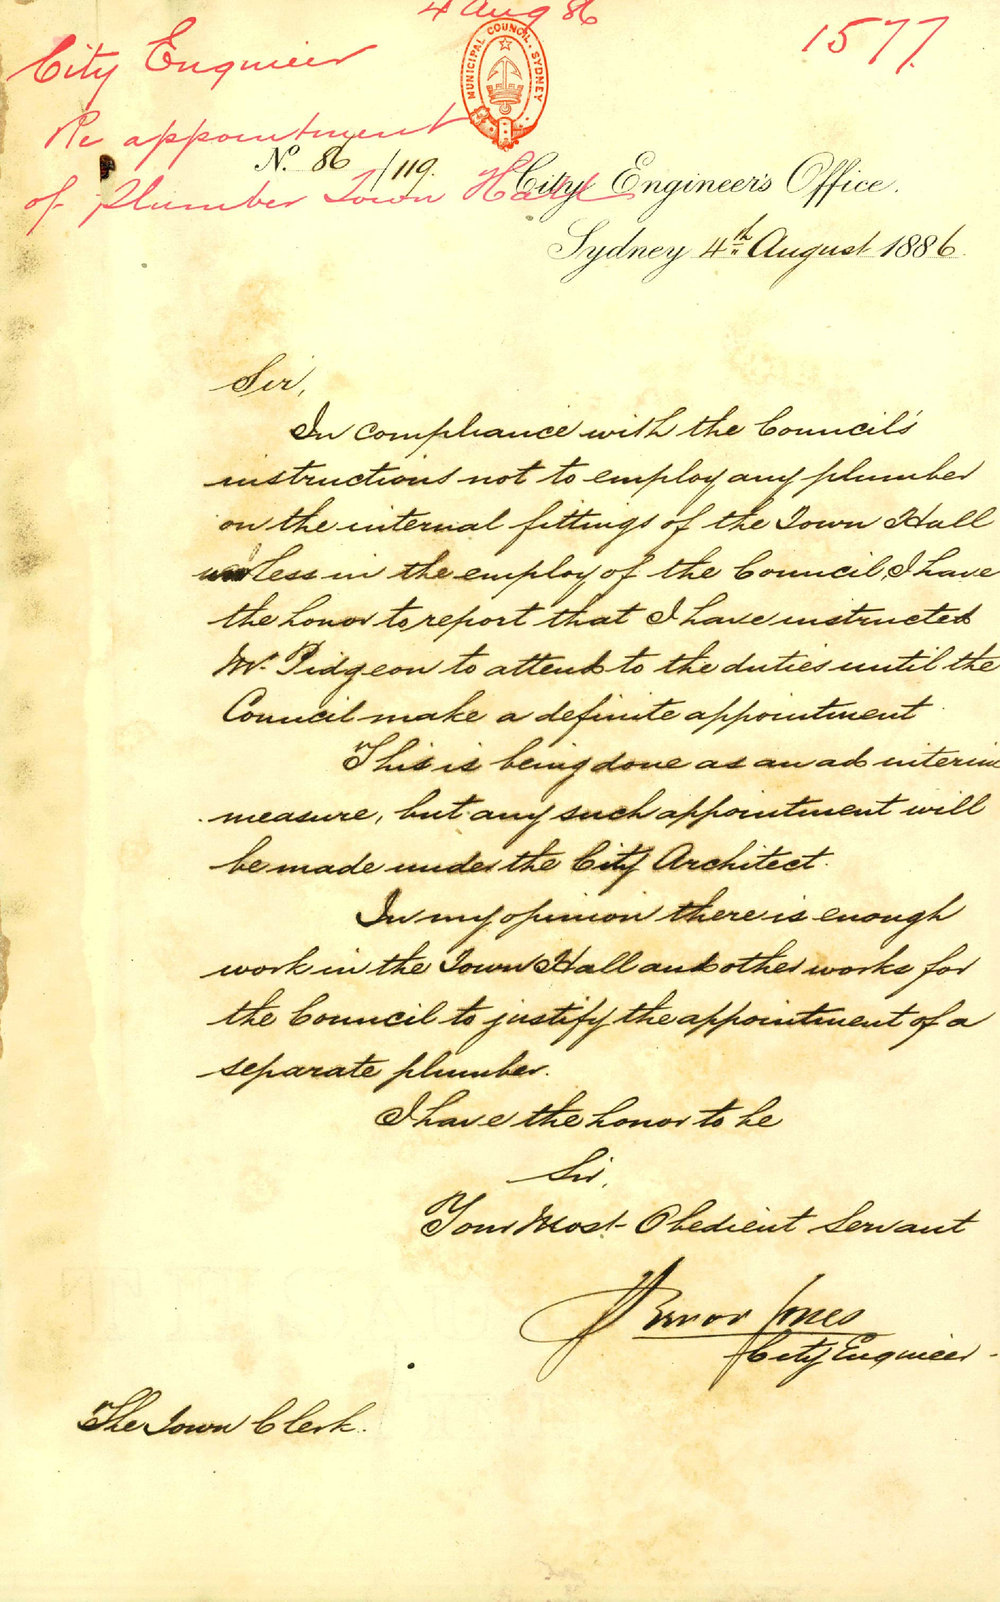 4 Aug 86
1577
City Engineer
Re appointment
of Plumber Town Hall
MUNICIPAL COUNCIL. SYDNEY
No. 86/119.
City Engineer's Office.
Sydney 4th August 1886
Sir,
In compliance with the Council's
instructions not to employ any plumber
on the internal fittings of the Town Hall
unless in the employ of the Council, I have
the honor to report that I have instructed
Mr. Pidgeon to attend to the duties until the
Council make a definite appointment
This is being done as an ad interim
measure, but any such appointment will
be made under the City Architect.
In my opinion there is enough
work in the Town Hall and other works for
the Council to justify the appointment of a
separate plumber.
I have the honor to be
Sir,
Your Most Obedient Servant
Trevor Jones
City Engineer
The Town Clerk.